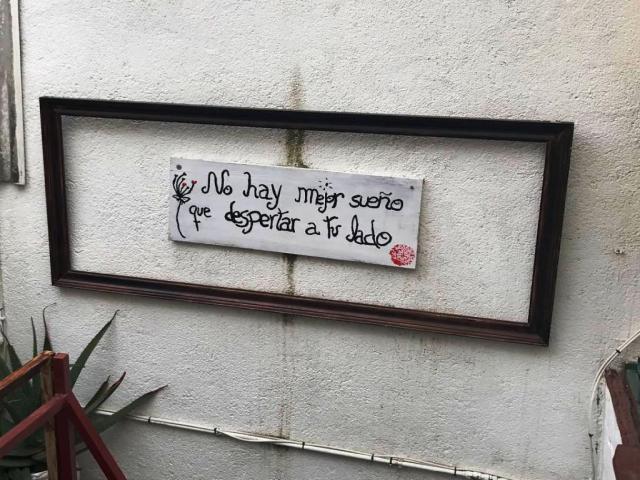 No hay mejor sueño
que despertar a tu lado